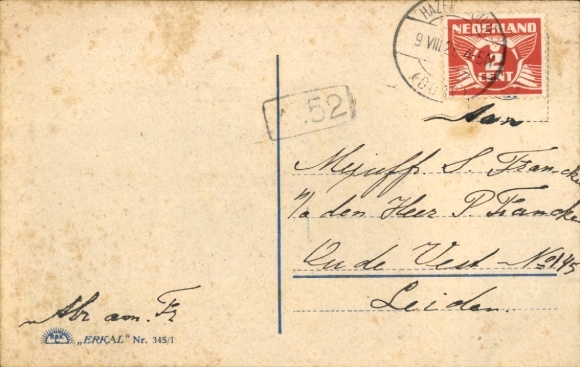 NEDERLAND
2
CENT
9 VIII
52
Aan
Mejuff. S. Francke
p/a den Heer P. Francke
Oude Vest No 145
Leiden.
Abr am. Fr
„ERKAL" Nr. 345/1